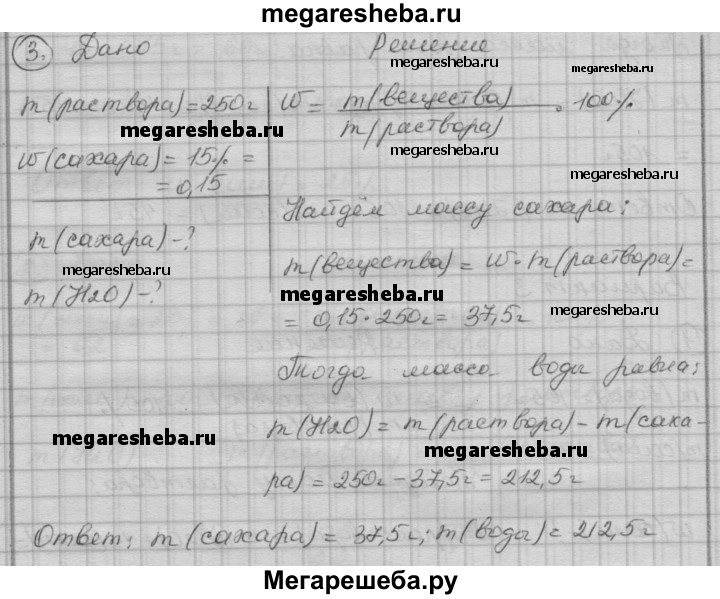 megaresheba.ru
3. Дано
Решение
megaresheba.ru
m(раствора)=250г
W = m(вещества) / m(раствора) · 100%
megaresheba.ru
megaresheba.ru
W(сахара)=15%=
=0,15
megaresheba.ru
Найдём массу сахара:
m(сахара)-?
m(вещества)=W·m(раствора)=
megaresheba.ru
m(H2O)-?
megaresheba.ru
=0,15·250г=37,5г
megaresheba.ru
Тогда масса воды равна:
m(H2O)=m(раствора)-m(саха-
megaresheba.ru
megaresheba.ru
ра)=250г-37,5г=212,5г
Ответ: m(сахара)=37,5г; m(воды)=212,5г
Мегарешеба.ру